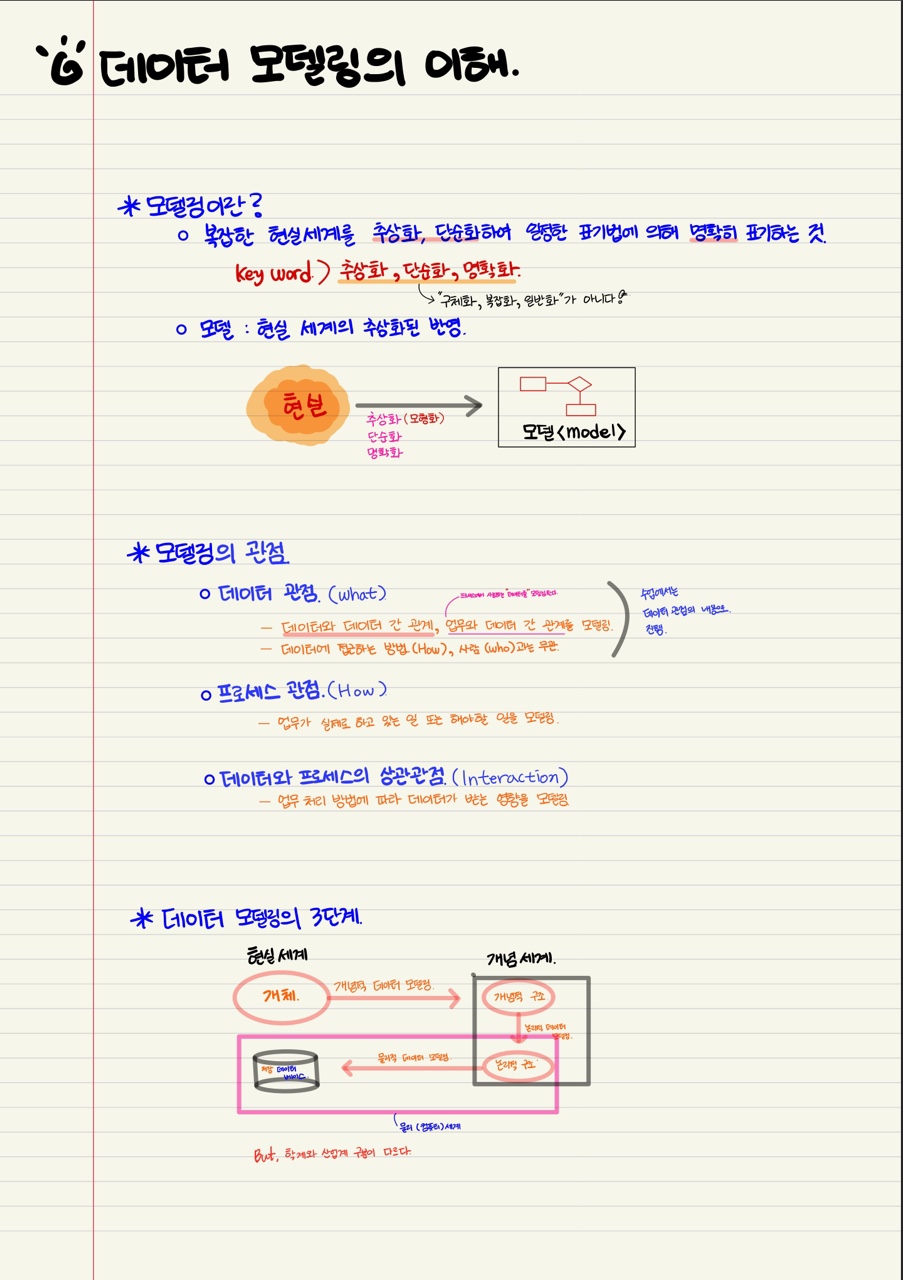 데이터 모델링의 이해.
* 모델링이란?
○ 복잡한 현실세계를 추상화, 단순화하여 일정한 표기법에 의해 명확히 표기하는 것.
key word.) 추상화, 단순화, 명확화.
"구체화, 복잡화, 일반화"가 아니다!
○ 모델 : 현실 세계의 추상화된 반영.
현실
추상화 (모형화)
단순화
명확화
모델<model>
* 모델링의 관점
○ 데이터 관점. (what)
프로세스에서 사용하는 "데이터를" 모델링한다.
수업에서는
데이터 관점의 내용으로.
진행.
- 데이터와 데이터 간 관계, 업무와 데이터 간 관계를 모델링.
- 데이터에 접근하는 방법 (How), 사람 (who)과는 무관.
○ 프로세스 관점. (How)
- 업무가 실제로 하고 있는 일 또는 해야할 일을 모델링.
○ 데이터와 프로세스의 상관관점. (Interaction)
- 업무 처리 방법에 따라 데이터가 받는 영향을 모델링
* 데이터 모델링의 3단계.
현실 세계
개념 세계.
개체.
개념적 데이터 모델링.
개념적 구조
논리적 데이터
모델링.
저장 데이터
베이스.
물리적 데이터 모델링.
논리적 구조
물리 (컴퓨터) 세계
But, 학계와 산업계 구분이 다르다.